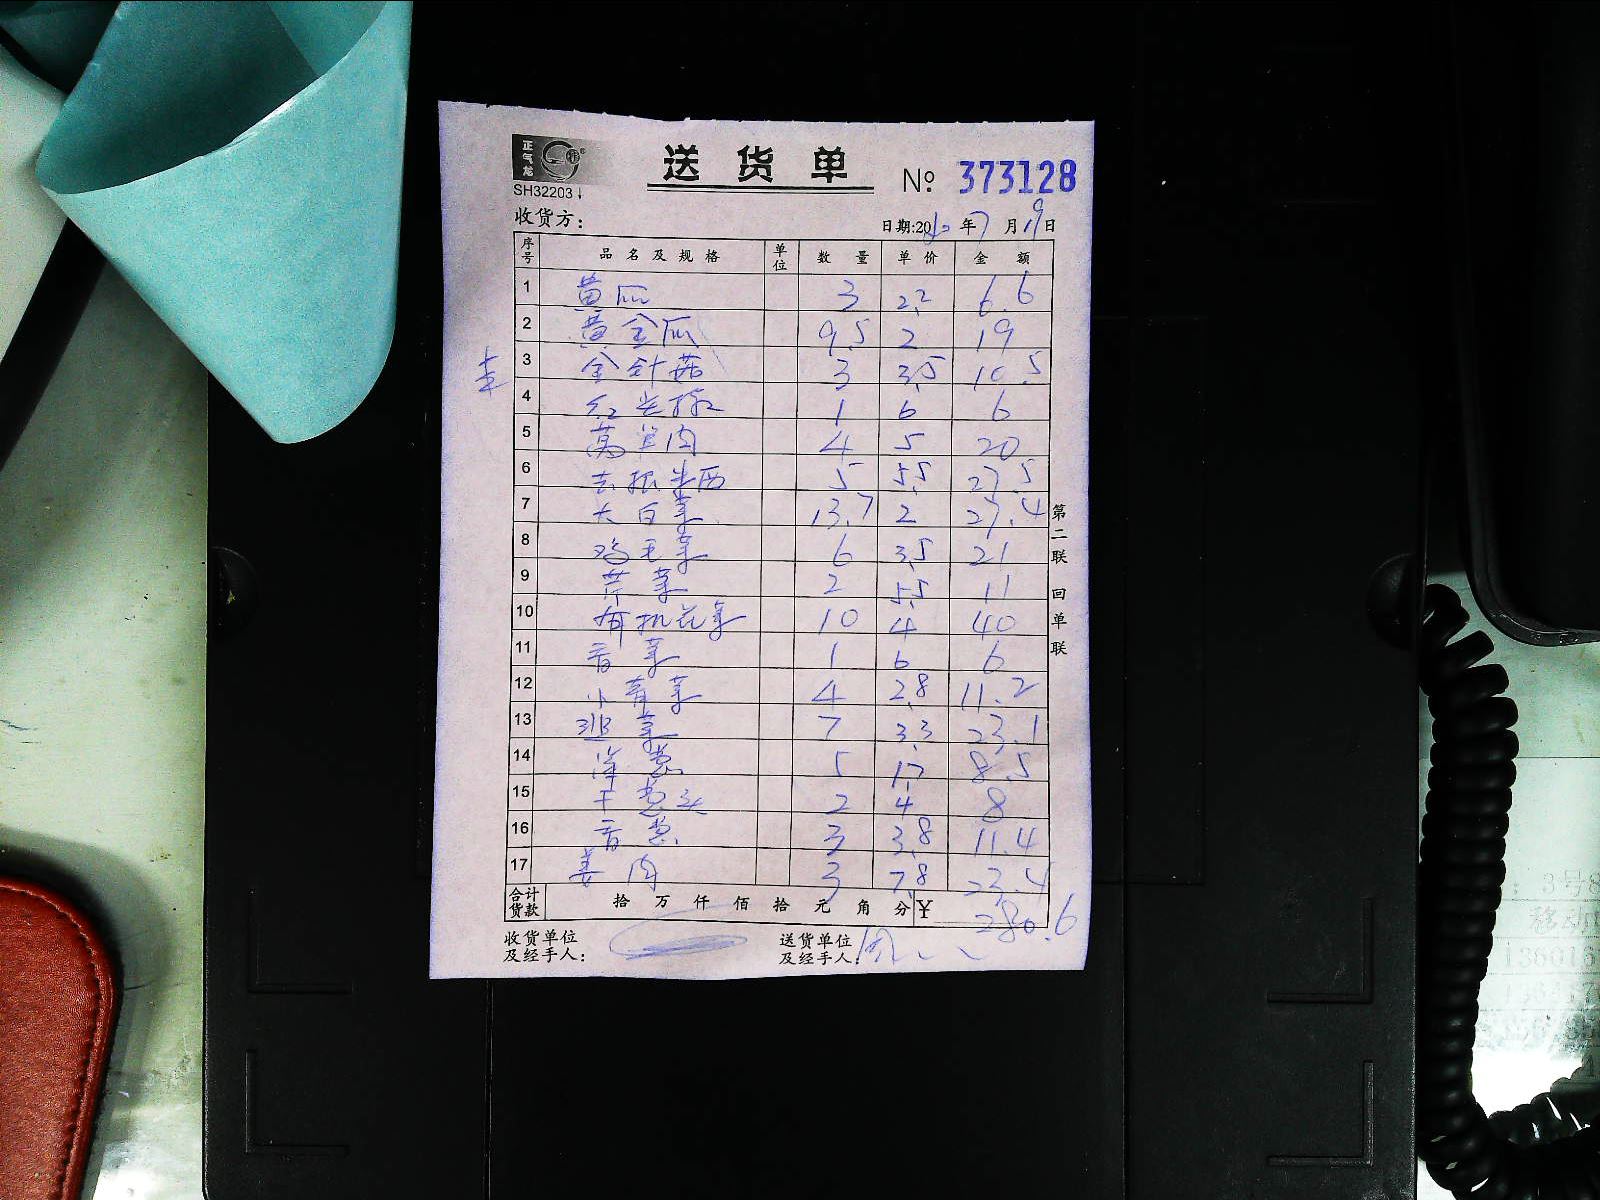 正气龙
SH32203
送货单
№ 373128
收货方:
日期:20 年7月19日
序号 品名及规格 单位 数量 单价 金额
1 黄瓜 3 2.2 6.6
2 黄金瓜 9.5 2 19
3 金针菇 3 3.5 10.5
4 红尖椒 1 6 6
5 莴笋肉 4 5 20
6 去根米西 5 5.5 27.5
7 大白菜 13.7 2 27.4
8 鸡毛菜 6 3.5 21
9 芹菜 2 5.5 11
10 有机花菜 10 4 40
11 香菜 1 6 6
12 小青菜 4 2.8 11.2
13 菜 7 3.3 23.1
14 洋葱 5 1.7 8.5
15 干葱头 2 4 8
16 香葱 3 3.8 11.4
17 姜肉 3 7.8 23.4
合计货款 拾万仟佰拾元角分 ¥ 280.6
收货单位及经手人:
送货单位及经手人:
第二联 回单联
: 3号8
移动